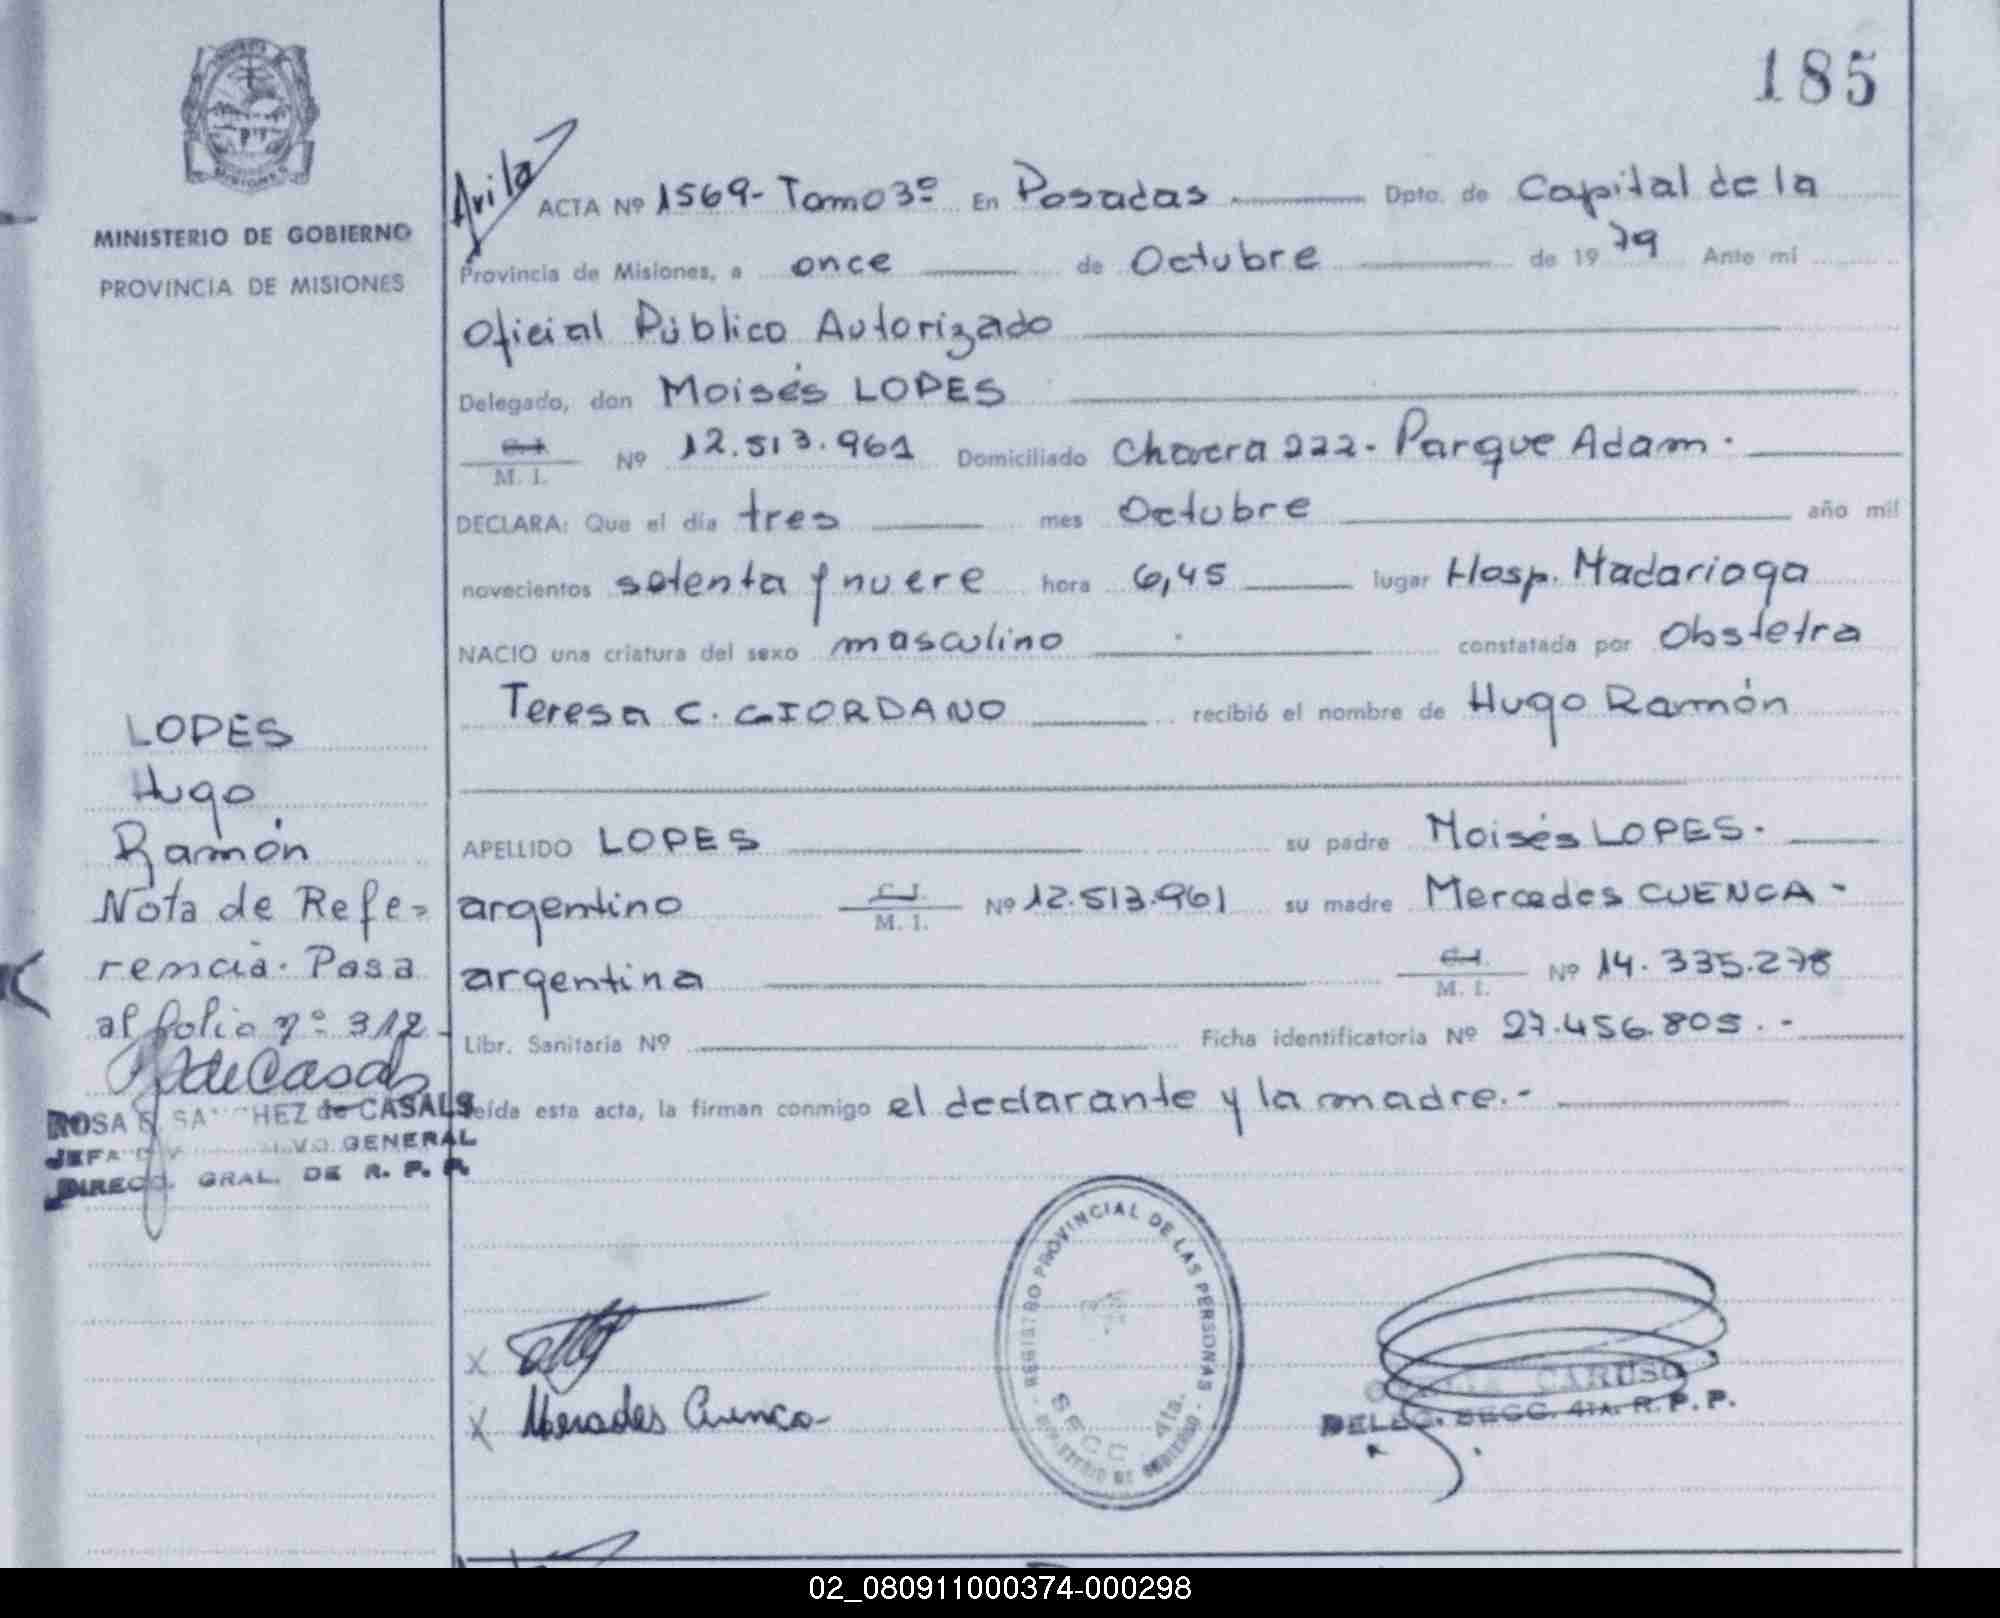 185
MISIONES
MINISTERIO DE GOBIERNO
PROVINCIA DE MISIONES
Avila
ACTA Nº 1569- Tomo 3º En Posadas Dpto. de Capital de la
Provincia de Misiones, a once de Octubre de 1979 Ante mí
Oficial Público Autorizado
Delegado, don Moisés LOPES
C.I. M. I. Nº 12.513.961 Domiciliado Chacra 222- Parque Adam.
DECLARA: Que el día tres mes Octubre año mil
novecientos setenta y nueve hora 6,45 lugar Hosp. Madariaga
NACIO una criatura del sexo masculino constatada por Obstetra
Teresa C. GIORDANO recibió el nombre de Hugo Ramón
APELLIDO LOPES su padre Moisés LOPES.
argentino C.I. M. I. Nº 12.513.961 su madre Mercedes CUENCA -
argentina C.I. M. I. Nº 14.335.278
Libr. Sanitaria Nº Ficha identificatoria Nº 27.456.805.-
leída esta acta, la firman conmigo el declarante y la madre.-
LOPES
Hugo
Ramón
Nota de Refe=
rencia. Pasa
al folio nº 312-
RdeCasals
ROSA E. SANCHEZ de CASALS
JEFA GENERAL
DIRECC. GRAL. DE R. P. P.
X
X Mercedes Cuenca
REGISTRO PROVINCIAL DE LAS PERSONAS
SECC 4ta.
MINISTERIO DE GOBIERNO
CARUSO
DELEG. SECC. 4TA. R. P. P.
02_080911000374-000298